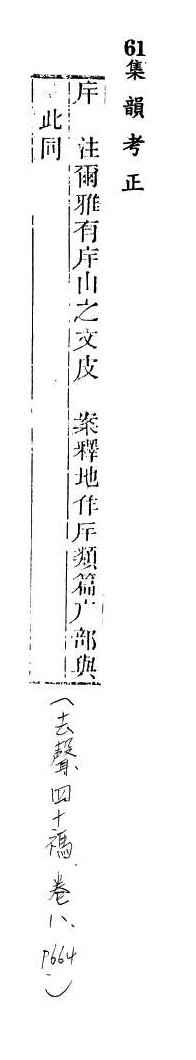 61集韻考正
注爾雅有山之文皮 案釋地作類篇广部與
此同
(去聲、四十禡、卷八、P664)